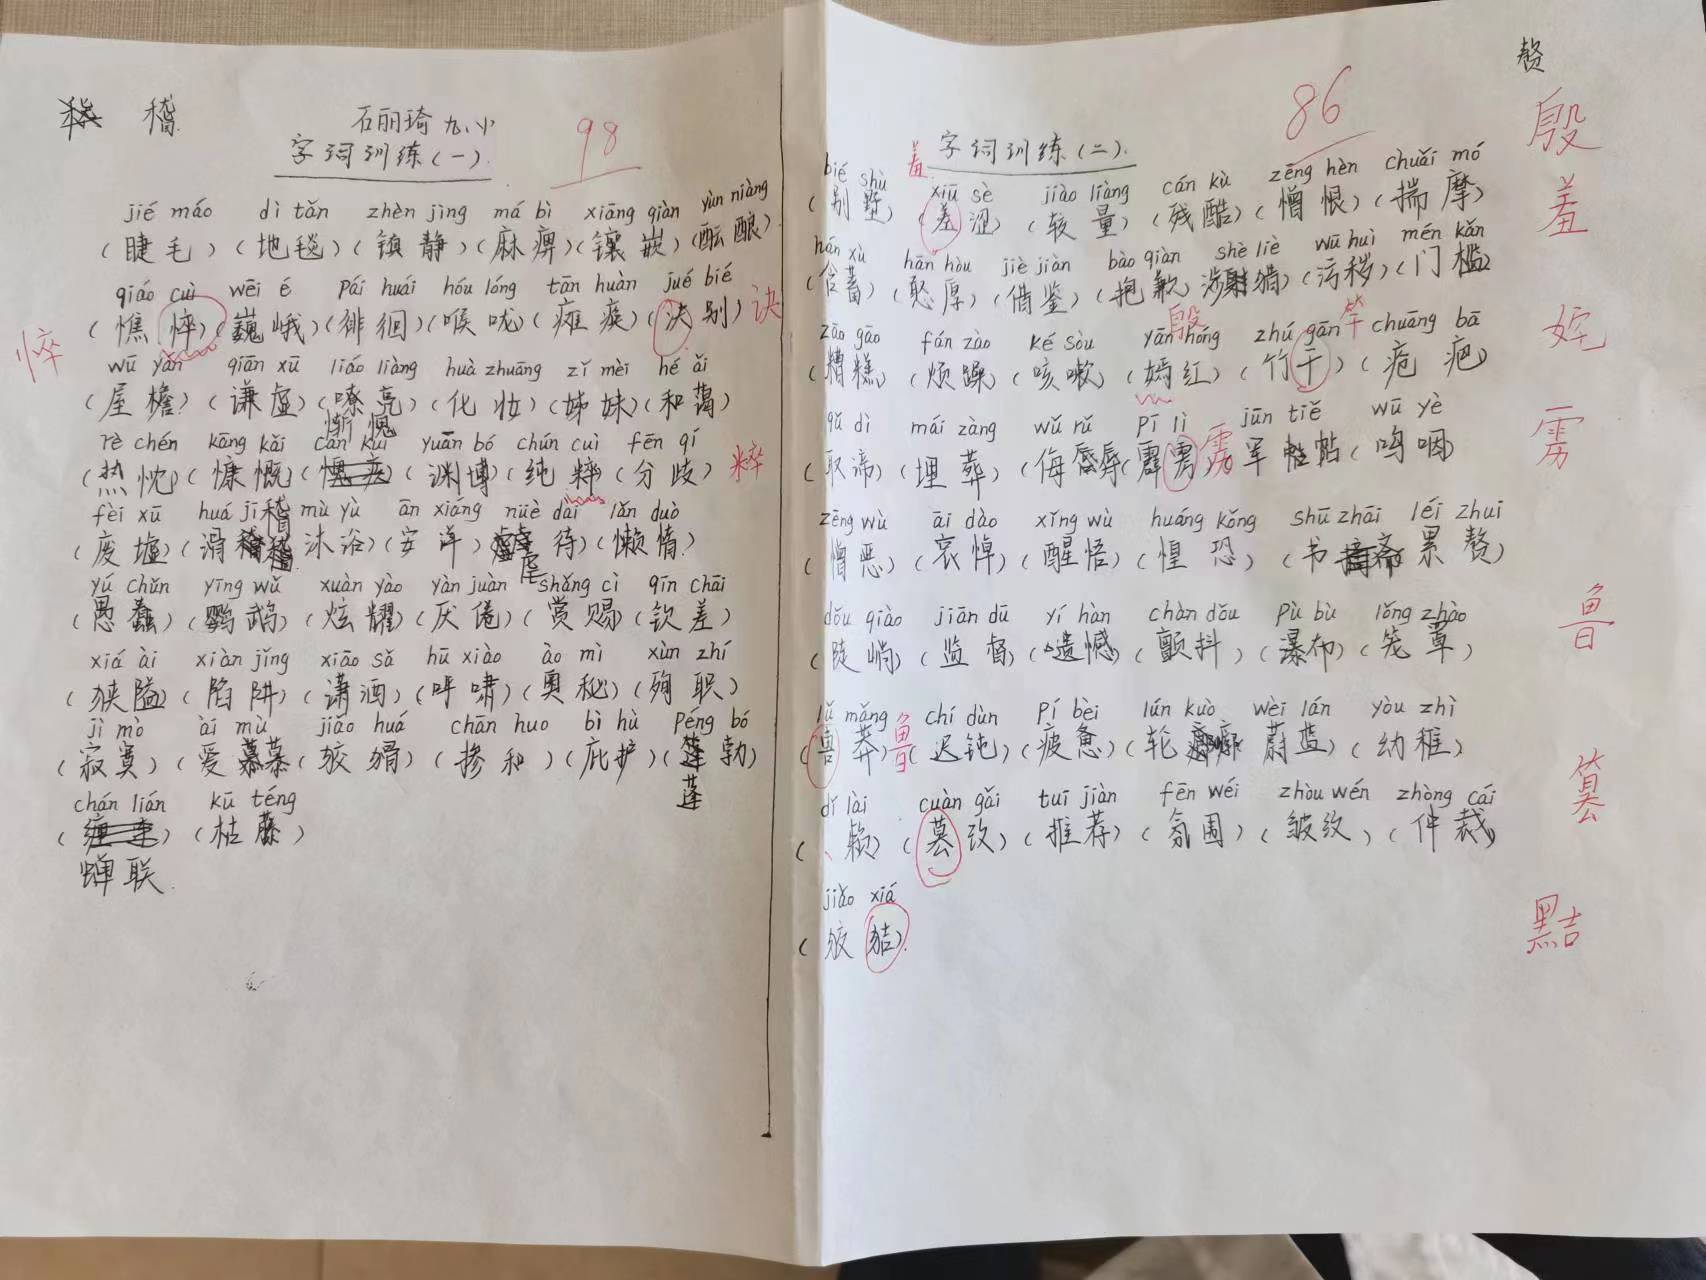 稽
石丽琦 九.小
字词训练(一)
98
jié máo dì tǎn zhèn jìng má bì xiāng qiàn yùn niàng
(睫毛)(地毯)(镇静)(麻痹)(镶嵌)(酝酿)
qiáo cuì wēi é Pái huái hóu lóng tān huàn jué bié
(憔悴)(巍峨)(徘徊)(喉咙)(瘫痪)(决别)诀
悴
wū yán qiān xū liáo liàng huà zhuāng zǐ mèi hé ǎi
(屋檐)(谦虚)(嘹亮)(化妆)(姊妹)(和蔼)
惭愧
rè chén kāng kǎi cán kuì yuān bó chún cuì fēn qí
(热忱)(慷慨)( )(渊博)(纯粹)(分歧)粹
fèi xū huá jī mù yù ān xiáng nüè dài lǎn duò
稽
(废墟)(滑 )(沐浴)(安详)(虐待)(懒惰)
yú chǔn yīng wǔ xuàn yào yàn juàn shǎng cì qīn chāi
(愚蠢)(鹦鹉)(炫耀)(厌倦)(赏赐)(钦差)
xiá ài xiàn jǐng xiāo sǎ hū xiào ào mì xùn zhí
(狭隘)(陷阱)(潇洒)(呼啸)(奥秘)(殉职)
jì mò ài mù jiǎo huá chān huo bì hù péng bó
(寂寞)(爱慕)(狡猾)(掺和)(庇护)(蓬勃)
蓬
chán lián kū téng
( )(枯藤)
蝉联
赘
字词训练(二)
86
羞
bié shù xiū sè jiào liàng cán kù zēng hèn chuǎi mó
(别墅)(羞涩)(较量)(残酷)(憎恨)(揣摩)
hán xù hān hòu jiè jiàn bào qiàn shè liè wū huì mén kǎn
(含蓄)(憨厚)(借鉴)(抱歉)(涉猎)(污秽)(门槛)
殷 竿
zāo gāo fán zào ké sòu yān hóng zhú gān chuāng bā
(糟糕)(烦躁)(咳嗽)(嫣红)(竹干)(疮疤)
qǔ dì mái zàng wǔ rǔ pī lì jūn tiě wū yè
(取谛)(埋葬)(侮辱)(霹雳)雳 军帖(呜咽)
zēng wù āi dào xǐng wù huáng kǒng shū zhāi léi zhui
(憎恶)(哀悼)(醒悟)(惶恐)(书斋 累赘)
dǒu qiào jiān dū yí hàn chàn dǒu pù bù lǒng zhào
(陡峭)(监督)(遗憾)(颤抖)(瀑布)(笼罩)
lǔ mǎng chí dùn pí bèi lún kuò wèi lán yòu zhì
( 莽)鲁(迟钝)(疲惫)(轮廓 蔚蓝)(幼稚)
dǐ lài cuàn gǎi tuī jiàn fēn wéi zhòu wén zhòng cái
( 赖)( 改)(推荐)(氛围)(皱纹)(仲裁)
jiǎo xiá
(狡 )
殷
羞
雳
鲁
篡
黠